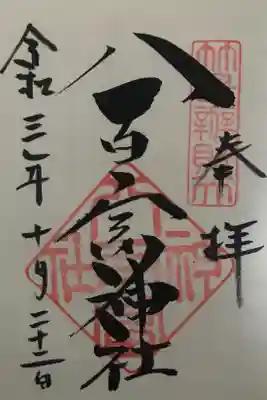 奉拝
八百富神社
令和三年十月二十二日